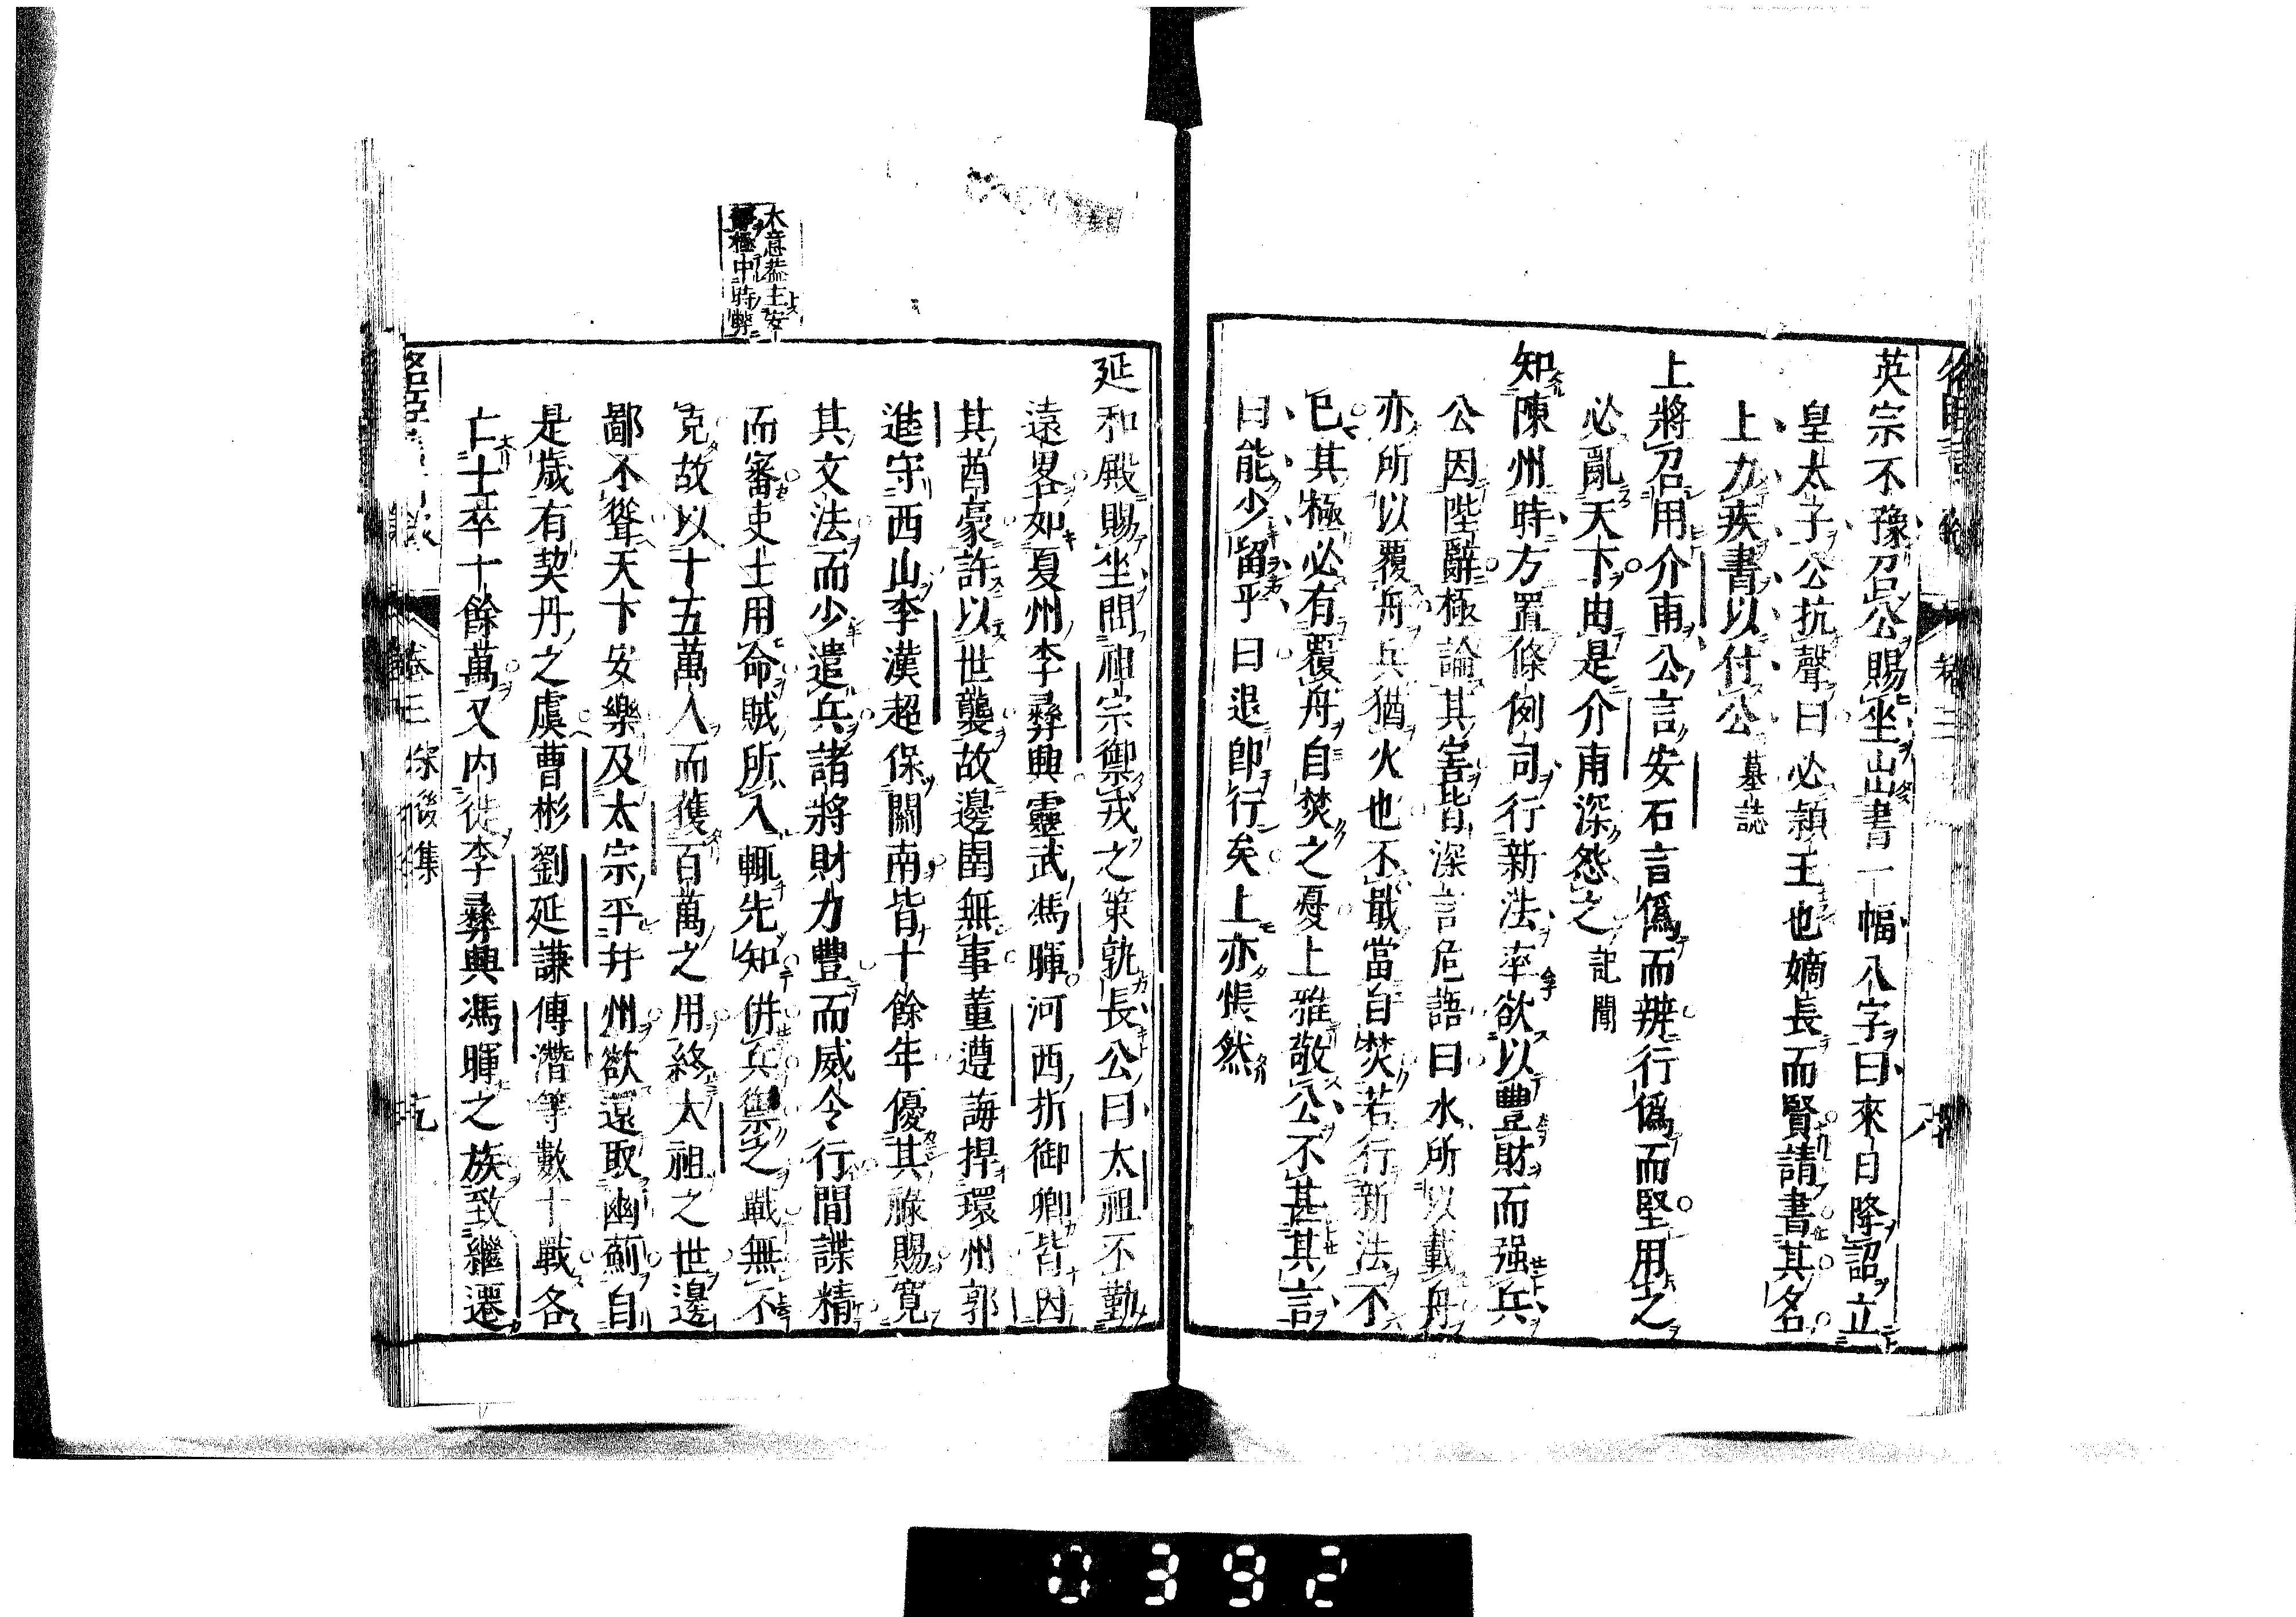 英宗不豫召公賜坐出書一幅八字曰來日降詔立
皇太子公抗聲曰必潁王也嫡長而賢請書其名
上力疾書以付公 墓誌
上將召用介甫公言安石言偽而辨行偽而堅用之
必亂天下由是介甫深怨之 記聞
知陳州時方置條例司行新法率欲以豐財而强兵
公因陛辭極論其害皆深言危語曰水所以載舟
亦所以覆舟兵猶火也不戢當自焚若行新法不
已其極必有覆舟自焚之憂上雅敬公不甚其言
曰能少留乎曰退即行矣上亦悵然
大意蓋主安
極中時弊
延和殿賜坐問祖宗禦戎之策孰長公曰太祖不勤
遠畧如夏州李彞興靈武馮暉河西折御卿皆因
其酋豪許以世襲故邊圉無事董遵誨捍環州郭
進守西山李漢超保關南皆十餘年優其祿賜寬
其文法而少遣兵諸將財力豐而威令行間諜精
而審吏士用命賊所入輒先知併兵禦之戰無不
克故以十五萬人而獲百萬之用終太祖之世邊
鄙不聳天下安樂及太宗平并州欲遠取幽薊自
是歲有契丹之虞曹彬劉延謙傅潛等數十戰各
亡士卒十餘萬又內徙李彞興馮暉之族致繼遷
卷三 後集
0392